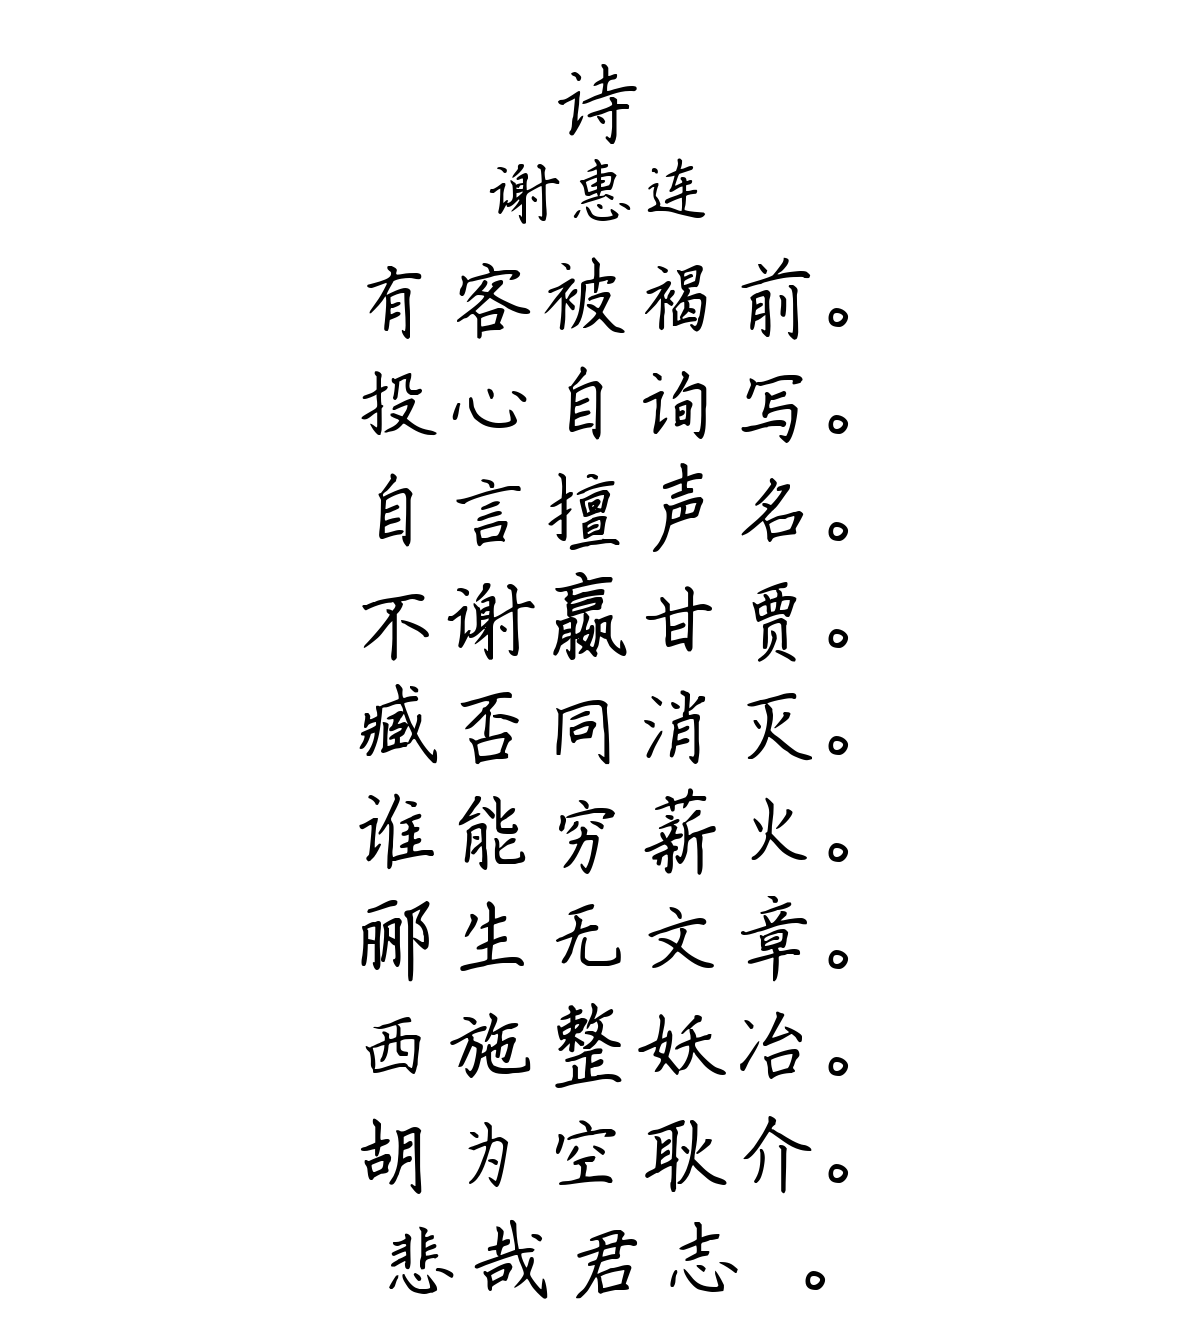 诗
谢惠连
有客被褐前。
投心自询写。
自言擅声名。
不谢嬴甘贾。
臧否同消灭。
谁能穷薪火。
郦生无文章。
西施整妖冶。
胡为空耿介。
悲哉君志 。